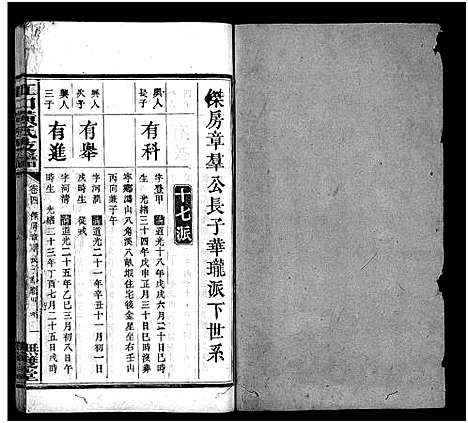 傑房章羣公長子華瓏派下世系
十七派
興人
長子
有科
字登甲 清道光十八年戊戌六月二十日巳時
生 光緒三十四年戊申正月三十日巳時沒葬
寧鄉
八角溪八畝塅住宅後金星右壬山
丙向兼子午
興人
次子
有舉
字河清 清道光二十一年辛丑十一月初一日
戌時生 從戎
興人
三子
有進
字河清 清道光二十五年乙巳三月初八日午時
生 光緒三十三年丁酉七月二十五日戌時
黃氏支譜
卷四
無雙堂